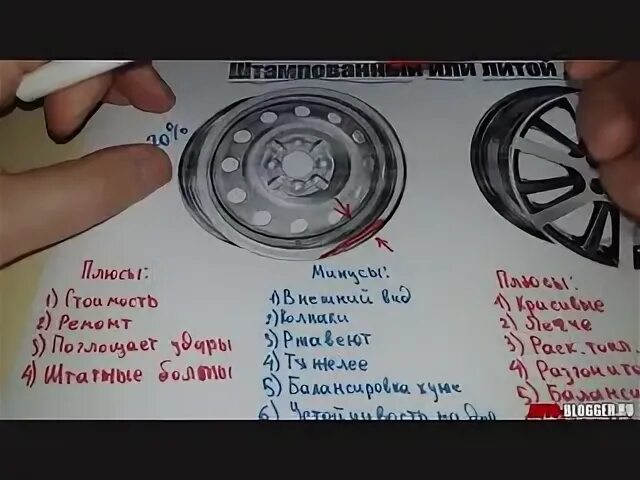 Штампованный или литой
20%
Плюсы:
1) Стоимость
2) Ремонт
3) Поглощает удары
4) Штатные болты
Минусы:
1) Внешний вид
2) Колпаки
3) Ржавеют
4) Тяжелее
5) Балансировка хуже
6) Устойчивость на
Плюсы:
1) Красивые
2) Легче
3) Расх. топл.
4) Разгон и то
5) Баланси
BLOGGER.RU